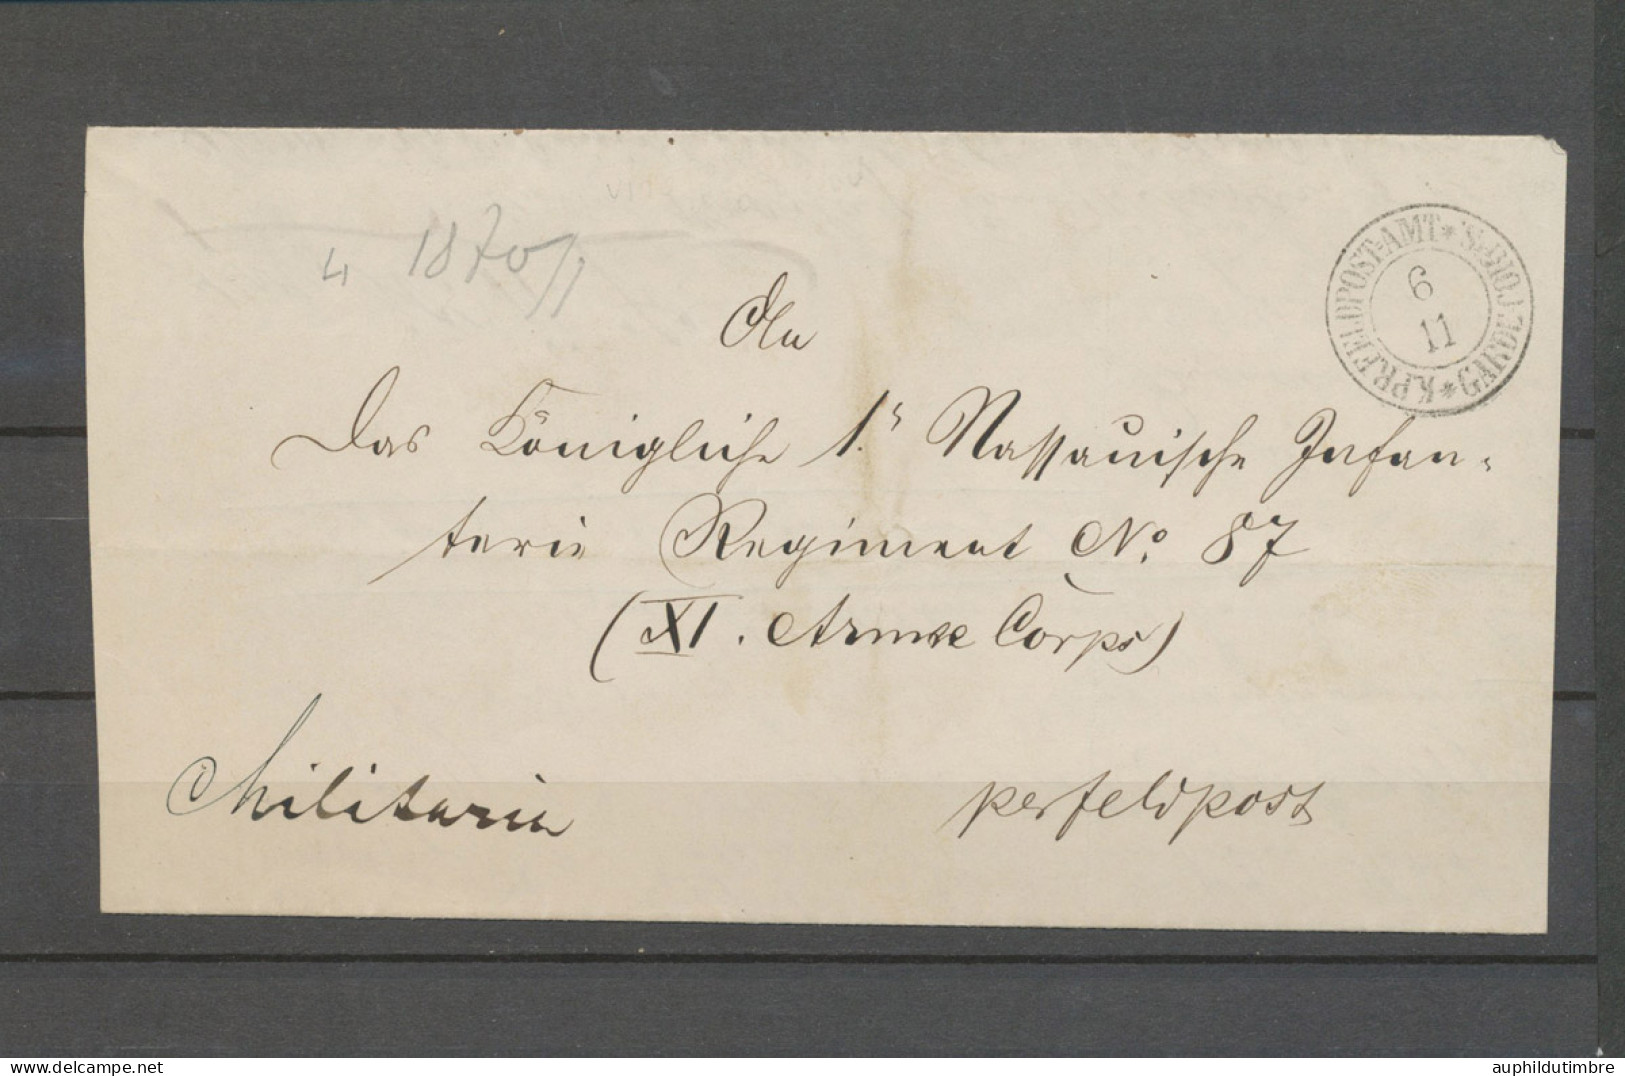 4 1870/71
K.PR.FELDPOST-AMT * GARDE
6
11
An
Das Königliche 1.te Nassauische Infan-
terie Regiment No. 87
(XI. Armee Corps)
Militaria
per feldpost
auphildutimbre